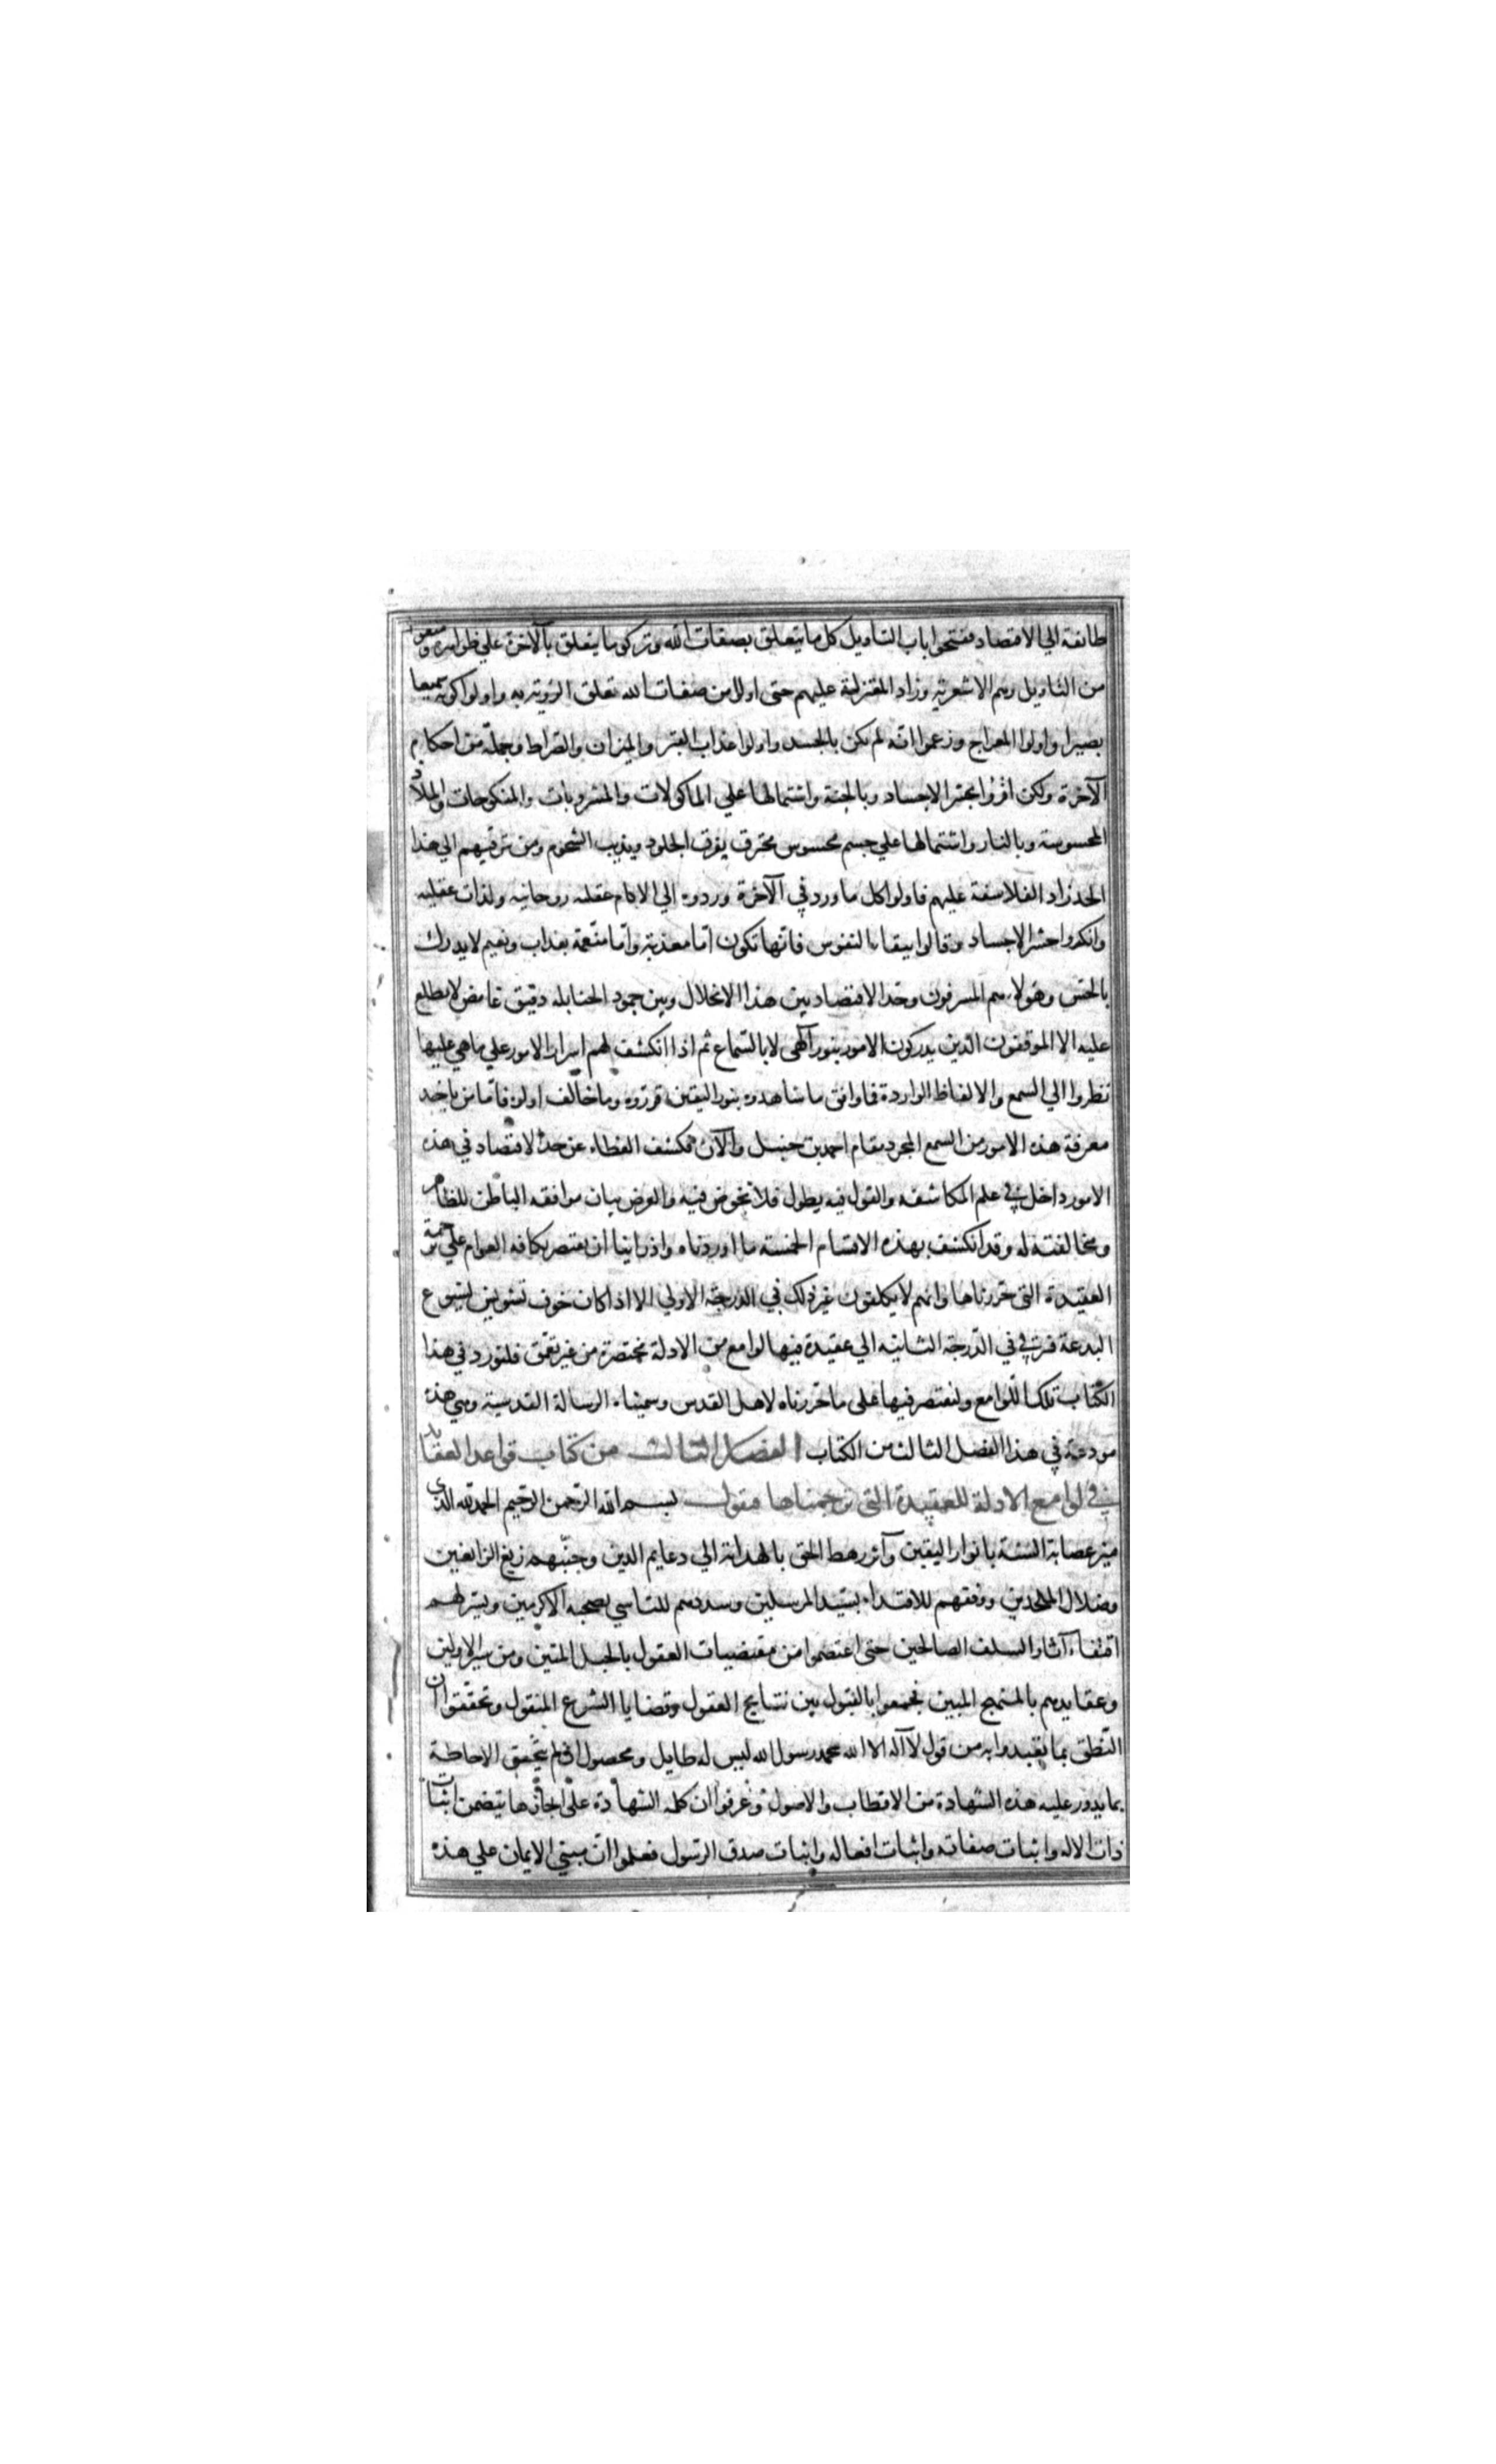 طائفة الي الاقتصاد ففتحوا باب التاويل كل ما يتعلق بصفات الله وتركو ما يتعلق بالآخرة علي ظواهره ومنعوا
من التاويل وهم الاشعرية وزاد المعتزلة عليهم حتى اولوا من صفات الله تعلق الرؤية به واولوا كونه سميعا
بصيرا واولوا المعراج وزعموا انه لم يكن بالجسد واولوا عذاب القبر والميزان والصراط وجملة من احكام
الآخرة ولكن اقرّوا بحشر الاجساد وبالجنة واشتمالها علي الماكولات والمشروبات والمنكوحات والملاذ
المحسوسة وبالنار واشتمالها علي جسم محسوس محترق يفرق الجلود ويذيب الشحوم ومن ترقيهم الي هذا
الحد زاد الفلاسفة عليهم فاولوا كل ما ورد في الآخرة وردوه الي الام عقليه روحانيه ولذات عقليه
وانكروا حشر الاجساد وقالوا ببقاء النفوس فانها تكون امّا معذبة وامّا منعّمة بعذاب ونعيم لا يدرك
بالحسّ وهولاء هم المسرفون وحد الاقتصاد بين هذا الانحلال وبين جمود الحنابله دقيق غامض لا يطلع
عليه الا الموفقون الذين يدركون الامور بنور آلهى لا بالسماع ثم اذا انكشف لهم اسرار الامور علي ما هي عليها
نظروا الي السمع والالفاظ الواردة فما وافق ما شاهدوه بنور اليقين قرروه وما خالف اولوه فاما من ياخذ
معرفة هذه الامور من السمع المجرد مقام احمد بن حنبل والآن فكشف الغطاء عن حد الاقتصاد في هذه
الامور داخل في علم المكاشفه والقول فيه يطول فلا نخوض فيه والغرض بيان موافقه الباطن للظاهر
ومخالفته له وقد انكشف بهذه الاقسام الخمسة ما اوردناه واذ راينا ان يقتصر بكافه العوام علي ترجمة
العقيدة التي حررناها وانهم لا يكلفون غير ذلك في الدرجة الاولي الا اذا كان خوف تشويش لشيوع
البدعة فيرقي في الدّرجة الثانية الي عقيدة فيها لوامع من الادلة مختصرة من غير تعمق فلنورد في هذا
الكتاب تلك اللوامع ولنقتصر فيها على ما حررناه لاهل القدس وسميناه الرسالة القدسية وهي هذه
مودعة في هذا الفصل الثالث من الكتاب الفصل الثالث من كتاب قواعد العقايد
في لوامع الادلة للعقيدة التي ترجمناها فنقول بسم الله الرحمن الرحيم الحمد لله الذي
ميز عصابة السنة بانوار اليقين وآثر رهط الحق بالهداية الي دعايم الدين وجنّبهم زيغ الزايغين
وضلال الملحدين ووفقهم للاقتداء بسيّد المرسلين وسددهم للتاسي بصحبه الاكرمين ويسّر لهم
اقتفاء آثار السلف الصالحين حتى اعتصموا من مقتضيات العقول بالحبل المتين ومن سير الاولين
وعقايدهم بالمنهج المبين فجمعوا بالقبول بين نتايج العقول وقضايا الشرع المنقول وتحقّقوا ان
النّطق بما تعبدوا به من قول لا آله الا الله محمد رسول الله ليس له طايل ومحصول ان لم يتحقق الاحاطة
بما يدور عليه هذه الشهادة من الاقطاب والاصول وعرفوا ان كلمه الشهادة على ايجازها يتضمن اثبات
ذات الاله واثبات صفاته واثبات افعاله واثبات صدق الرسول فعلموا ان مبني الايمان علي هذه